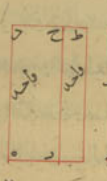 ط ح د
واحد واحد
ه ر